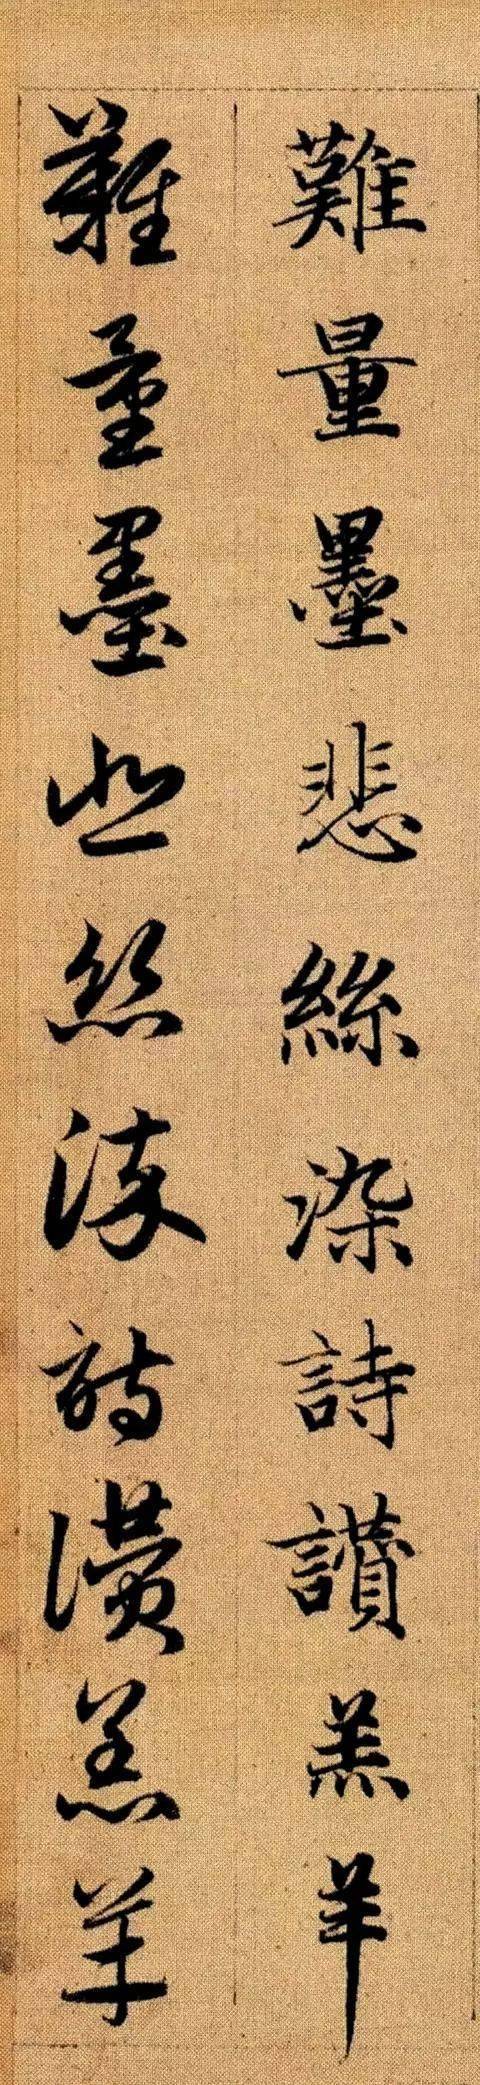 難量墨悲絲染詩讚羔羊
難量墨悲絲染詩讚羔羊